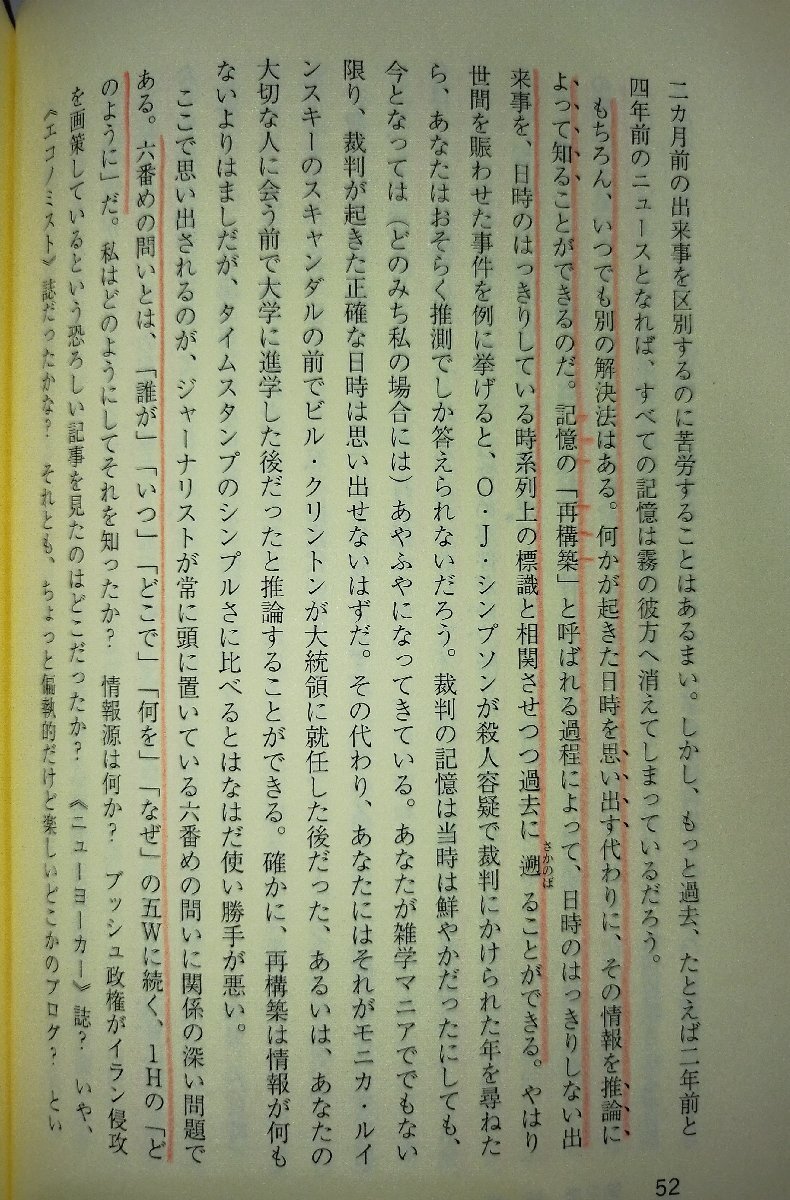 二カ月前の出来事を区別するのに苦労することはあるまい。しかし、もっと過去、たとえば二年前と
四年前のニュースとなれば、すべての記憶は霧の彼方へ消えてしまっているだろう。
もちろん、いつでも別の解決法はある。何かが起きた日時を思い出す代わりに、その情報を推論に
よって知ることができるのだ。記憶の「再構築」と呼ばれる過程によって、日時のはっきりしない出
来事を、日時のはっきりしている時系列上の標識と相関させつつ過去に遡ることができる。やはり
さかのぼ
世間を賑わせた事件を例に挙げると、O・J・シンプソンが殺人容疑で裁判にかけられた年を尋ねた
ら、あなたはおそらく推測でしか答えられないだろう。裁判の記憶は当時は鮮やかだったにしても、
今となっては（どのみち私の場合には）あやふやになってきている。あなたが雑学マニアででもない
限り、裁判が起きた正確な日時は思い出せないはずだ。その代わり、あなたにはそれがモニカ・ルイ
ンスキーのスキャンダルの前でビル・クリントンが大統領に就任した後だった、あるいは、あなたの
大切な人に会う前で大学に進学した後だったと推論することができる。確かに、再構築は情報が何も
ないよりはましだが、タイムスタンプのシンプルさに比べるとはなはだ使い勝手が悪い。
ここで思い出されるのが、ジャーナリストが常に頭に置いている六番めの問いに関係の深い問題で
ある。六番めの問いとは、「誰が」「いつ」「どこで」「何を」「なぜ」の五Wに続く、1Hの「ど
のように」だ。私はどのようにしてそれを知ったか？　情報源は何か？　ブッシュ政権がイラン侵攻
を画策しているという恐ろしい記事を見たのはどこだったか？　《ニューヨーカー》誌？　いや、
《エコノミスト》誌だったかな？　それとも、ちょっと偏執的だけど楽しいどこかのブログ？　とい
52